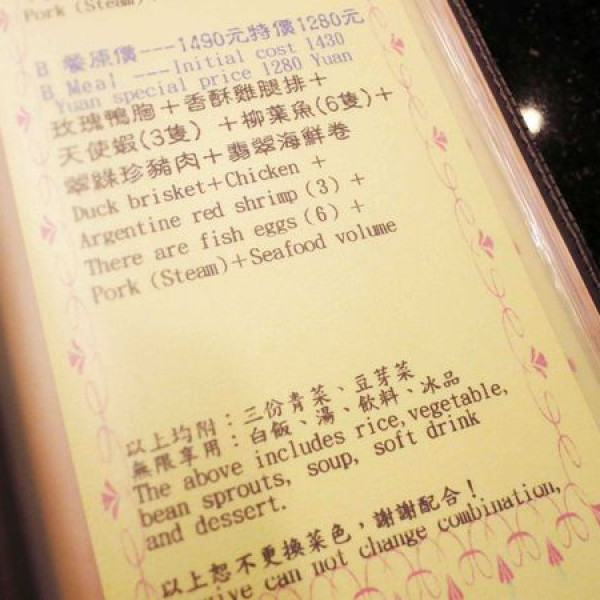 Pork (Steam)
B 餐原價---1490元特價1280元
B Meal ---Initial cost 1430
Yuan special price 1280 Yuan
玫瑰鴨胞+香酥雞腿排+
天使蝦(3隻) +柳葉魚(6隻)+
翠綠珍豬肉+翡翠海鮮卷
Duck brisket+Chicken +
Argentine red shrimp (3) +
There are fish eggs (6) +
Pork (Steam)+Seafood volume
以上均附：三份青菜、豆芽菜
無限享用：白飯、湯、飲料、冰品
The above includes rice,vegetable,
bean sprouts, soup, soft drink
and dessert.
以上恕不更換菜色，謝謝配合！
give can not change combination,